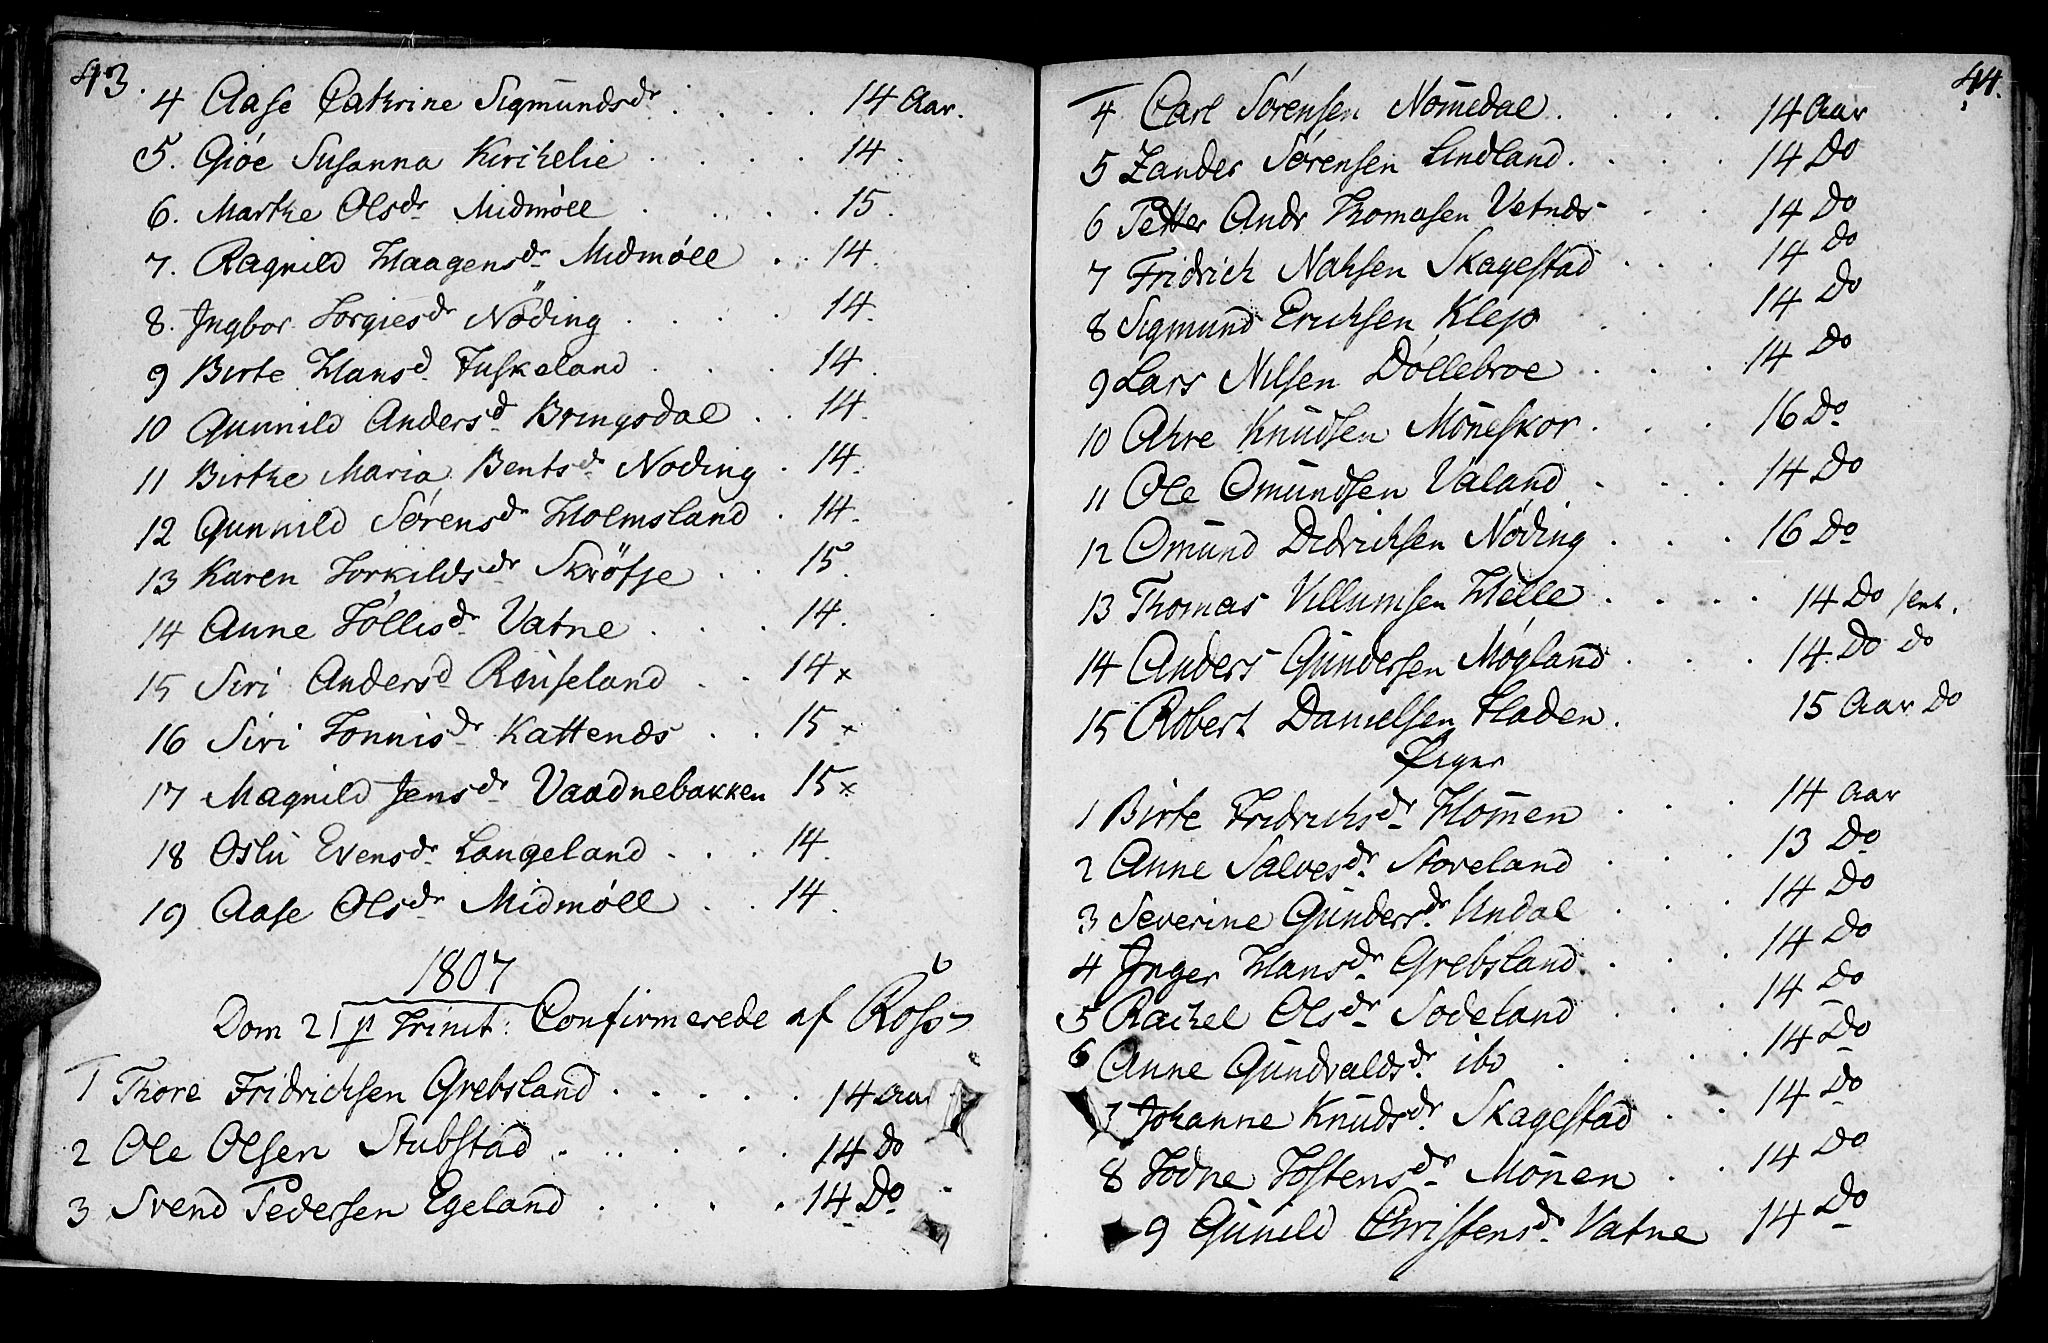 43.
4 Aase Cathrine Sigmundsdr . . . . 14 Aar.
5. Giöe Susanna Kirchelie . . . . 14.
6. Marthe Olsdr Midmöll . . . . 15.
7. Ragnild Haagensdr Midmöll . . 14.
8. Ingbor Torgiesdr Nöding . . . . 14.
9 Birte Hansd Fuskeland . . . 14.
10 Gunnild Andersd Bringsdal . . 14.
11 Birthe Maria Bentsdr Noding . 14.
12 Gunnild Sørensdr Holmsland . 14.
13 Karen Torkildsdr Skröfse . . 15.
14 Anne Töllisdr Vatne . . . 14.
15 Siri Andersd Röuseland . . 14 x
16 Siri Tönnisdr Kattends . . 15 x
17 Magnild Jensdr Vaadnebakken 15 x
18 Oslu Evensdr Langeland . . . 14.
19 Aase Olsdr Midmöll . . 14.
1807
Dom 21 p Trinit: Confirmerede af Ross
1 Thore Fridrichsen Grebsland . . . . . 14 Aar
2 Ole Olsen Stubstad . . . . . 14 Do
3 Svend Pedersen Egeland . . . . 14 Do
44.
4 Carl Sörensen Nomedal . . . . 14 Aar
5 Zander Sørensen Lindland . . . . 14 Do
6 Petter Andr Thomasen Vetnds . . 14 Do
7 Fridrich Nahsen Skagestad . . . 14 Do
8 Sigmund Erichsen Klep . . . 14 Do
9 Lars Nilsen Döllebroe . . . 14 Do
10 Ahre Knudsen Möneskor . . . 16 Do
11 Ole Omundsen Valand . . . 14 Do
12 Omund Didrichsen Nöding . . . 16 Do
13 Thomas Villumsen Helle . . . . 14 Do
14 Anders Gundersen Mögland . . . 14 Do Do
15 Robert Danielsen Hladen . 15 Aar Do
Piger
1 Birte Fridrichsdr Homen . . . 14 Aar
2 Anne Salvesdr Storeland . . . 13 Do
3 Severine Gundersdr Undal . . . 14 Do
4 Inger Hansdr Grebsland . . . 14 Do
5 Rachel Olsdr Sodeland . . . 14 Do
6 Anne Gundvaldsdr ibo . . . . 14 Do
7 Johanne Knudsdr Skagestad . . 14 Do
8 Todne Tostensdr Monen . . 14 Do
9 Gunild Christensdr Vatne 14 Do